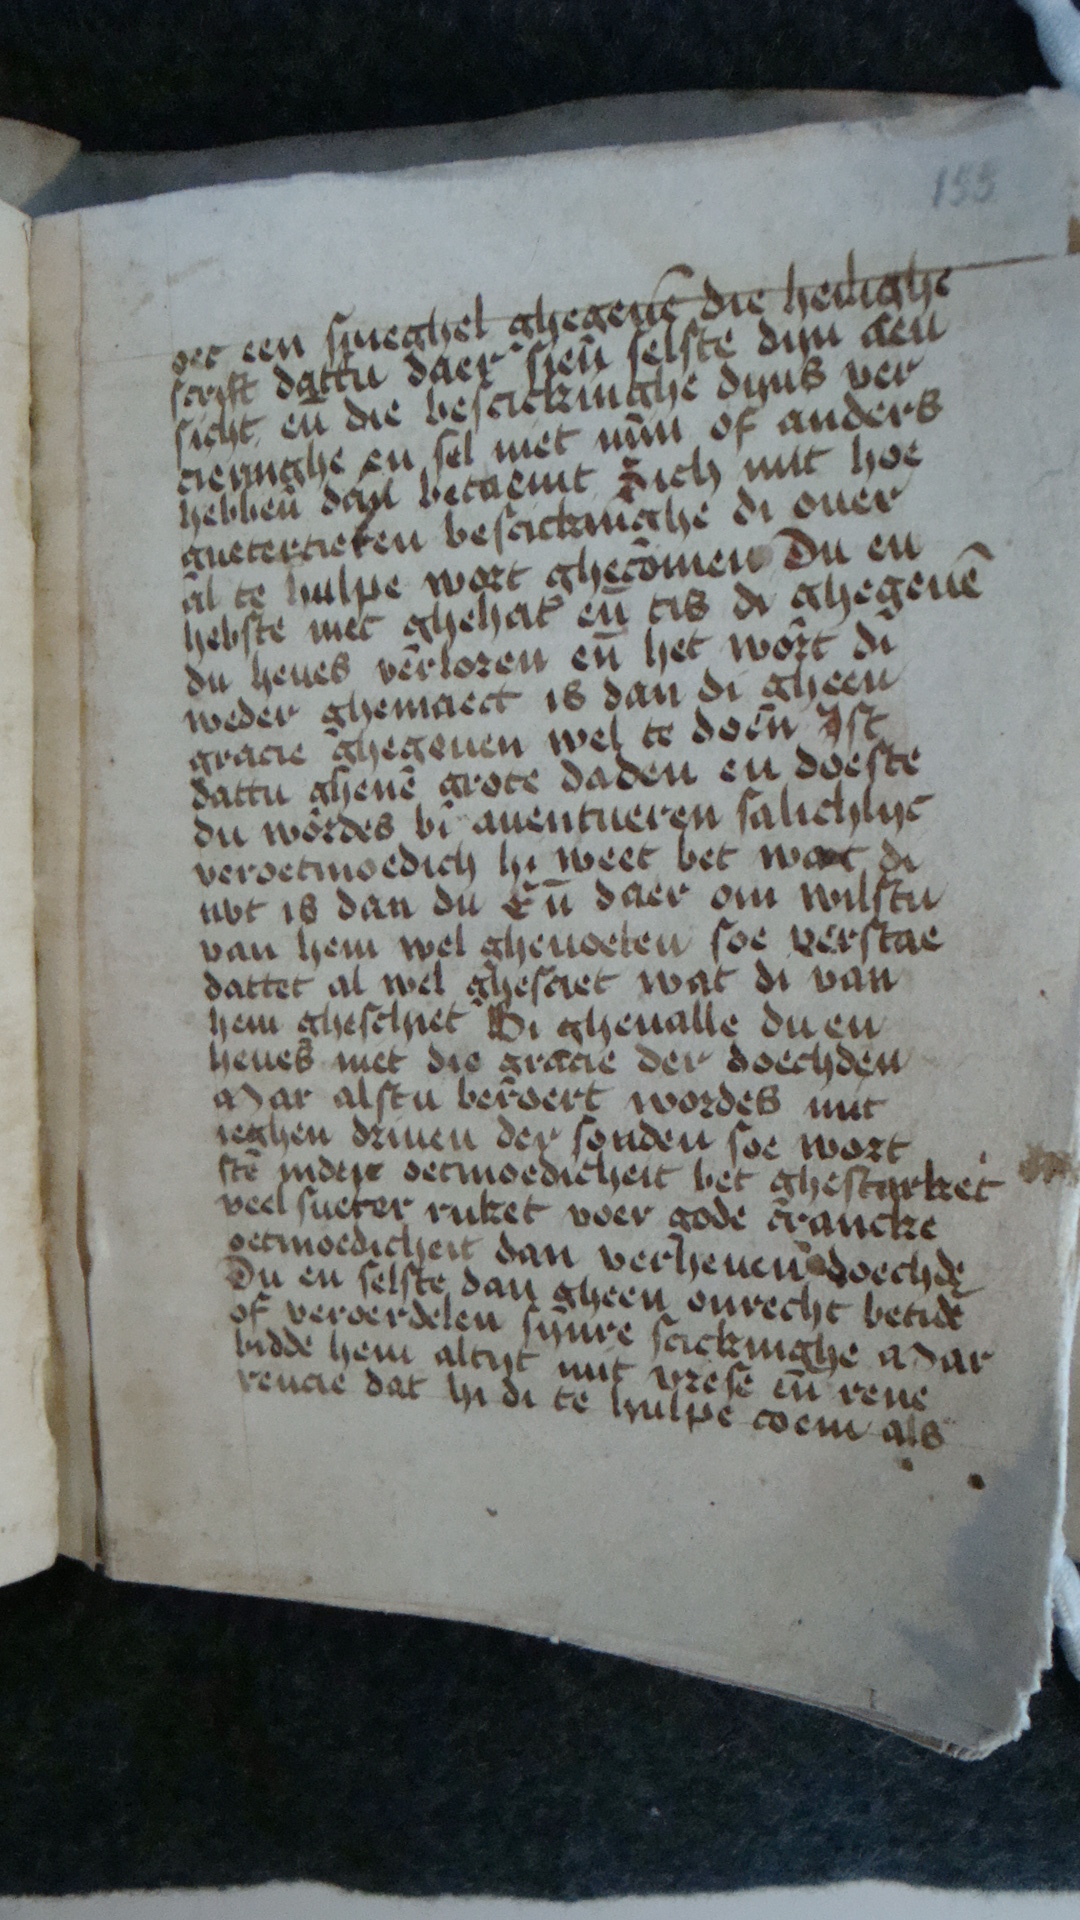 155
oec een spieghel ghegeuē die heilighe
scrift dattu daer sien̄ selste dijn aen
sicht en̄ die bescickinghe dijns ver
cieringhe en sel niet min of anders
hebben̄ dan betaemt Sich mit hoe
guetertieren bescickinghe di ouer
al te hulpe wort ghecōmen Du en
hebste niet ghehat en̄ tis di ghegeuē
du heues verloren en̄ het wort di
weder ghemaect is dan di gheen
gracie ghegeuen wel te doen Ist
dattu ghenē grote daden en doeste
du wordes bi auentueren salichlijc
veroetmoedich hi weet bet wat di
nut is dan du En̄ daer om wilstu
van hem wel gheuoelen soe verstae
dattet al wel ghesciet wat di van
hem gheschiet Bi gheualle du en
heues niet die gracie der doechden
Mar alstu beroert wordes mit
ieghen driuen der sonden soe wort
stē inder oetmoedicheit bet ghestarket
veel sueter ruket voer gode crancke
oetmoedicheit dan verheuen doechdē
Du en selste dan gheen onrecht betidē
of veroerdelen sijnre scickinghe Mar
bidde hem altijt mit vrese en̄ reue
rencie dat hi di te hulpe coem als